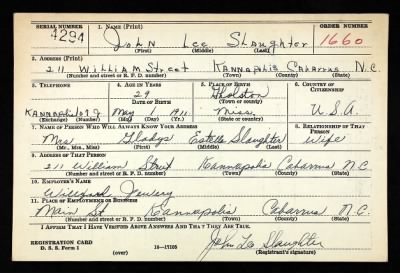 SERIAL NUMBER 1. NAME (Print) ORDER NUMBER
4294 John Lee Slaughter 1660
(First) (Middle) (Last)
2. ADDRESS (Print)
211 William Street Kannapolis Cabarrus N.C.
(Number and street or R. F. D. number) (Town) (County) (State)
3. TELEPHONE 4. AGE IN YEARS 5. PLACE OF BIRTH 6. COUNTRY OF CITIZENSHIP
29
DATE OF BIRTH (Town or county)
Kannapolis May 1911 Miss. U.S.A.
(Exchange) (Number) (Mo.) (Day) (Yr.) (State or country)
7. NAME OF PERSON WHO WILL ALWAYS KNOW YOUR ADDRESS 8. RELATIONSHIP OF THAT PERSON
Mrs Gladys Estelle Slaughter Wife
(Mr., Mrs., Miss) (First) (Middle) (Last)
9. ADDRESS OF THAT PERSON
211 William Street Kannapolis Cabarrus N.C
(Number and street or R. F. D. number) (Town) (County) (State)
10. EMPLOYER'S NAME
11. PLACE OF EMPLOYMENT OR BUSINESS
Main St Kannapolis Cabarrus N.C.
(Number and street or R. F. D. number) (Town) (County) (State)
I AFFIRM THAT I HAVE VERIFIED ABOVE ANSWERS AND THAT THEY ARE TRUE.
REGISTRATION CARD
D. S. S. Form 1 16—17105 John Lee Slaughter
(over) (Registrant's signature)